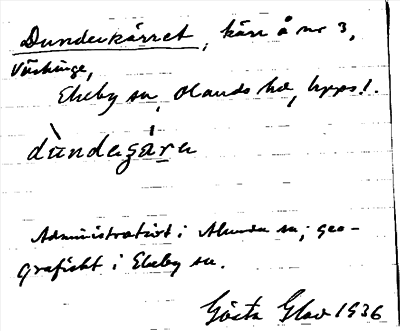 Dunderkärret, kärr å nr 3,
Väskinge,
Ekeby sn, Olands hd, Upps l.
dùndægá̱ra
Administrativt i Alunda sn; geo-
grafiskt i Ekeby sn.
Gösta Glav 1936